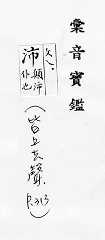 彙音寶鑑
沛
顛沛
仆也
(皆上去聲
P.313)